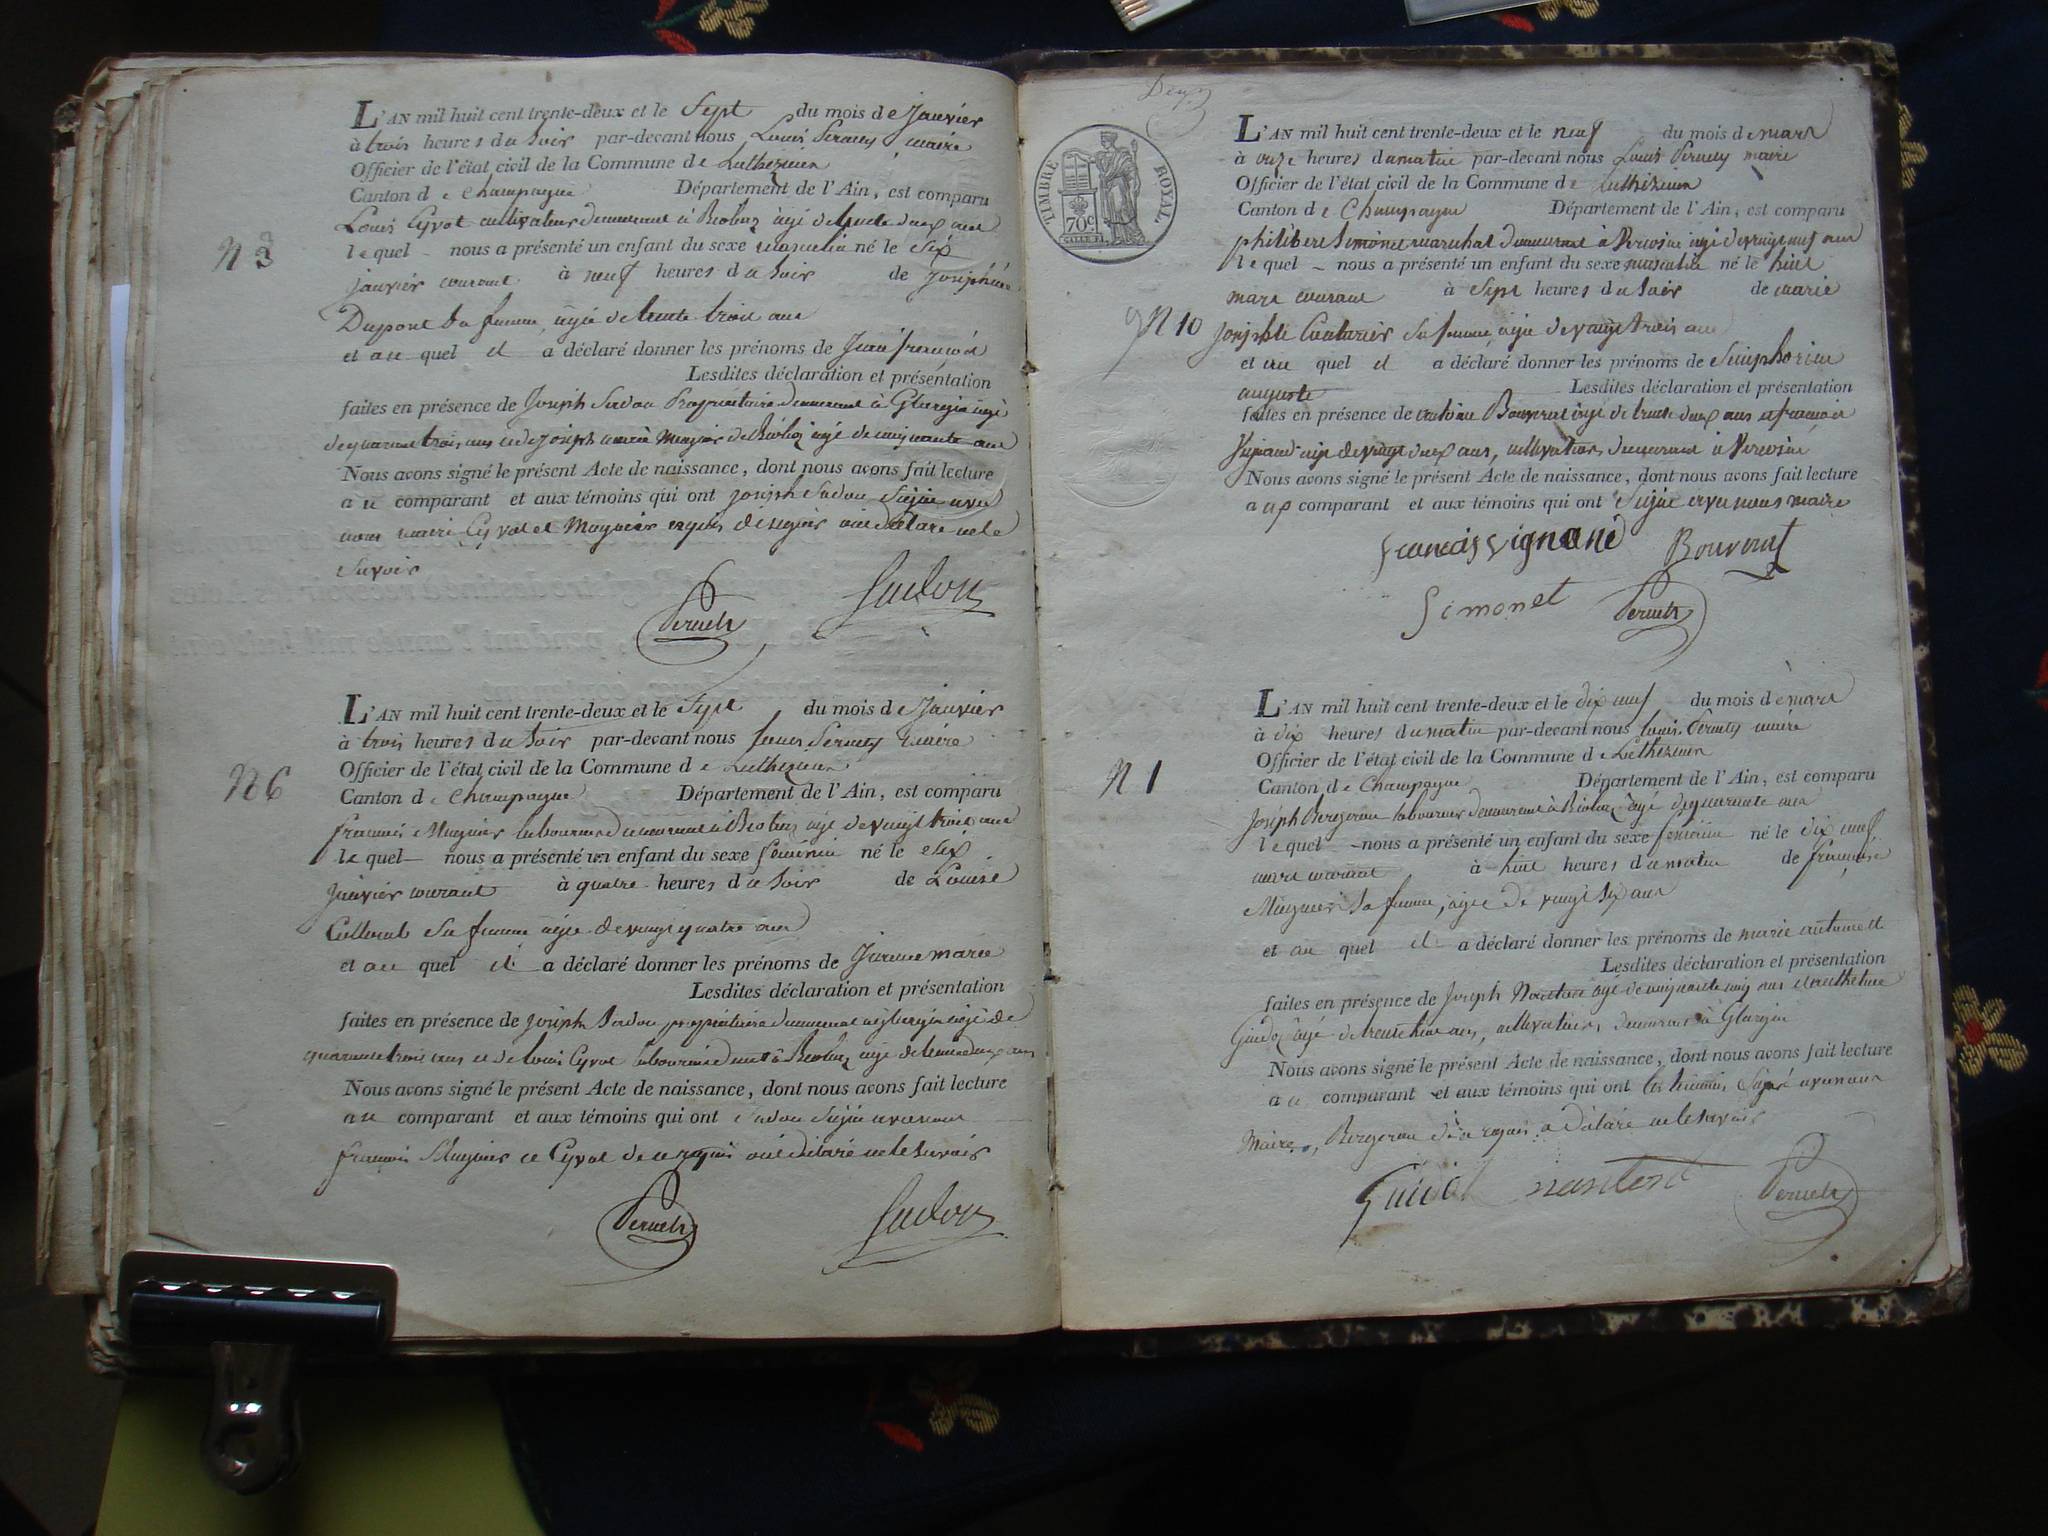 L'AN mil huit cent trente-deux et le Sept du mois de Janvier
à trois heures du Soir par-devant nous Louis maire
Officier de l'état civil de la Commune de Luthezieu
Canton de Champagne Département de l'Ain, est comparu
Louis Cyvot cultivateur demeurant à âgé de trente deux ans
lequel nous a présenté un enfant du sexe masculin né le Six
N 3
janvier courant à neuf heures du Soir de Josephine
Dupont Sa femme, agée de trente trois ans
et au quel il a déclaré donner les prénoms de Jean françois
Lesdites déclaration et présentation
faites en présence de Joseph Propriétaire demeurant à agé
de quarante trois ans et de Joseph marie de agé de cinquante ans
Nous avons signé le présent Acte de naissance, dont nous avons fait lecture
au comparant et aux témoins qui ont joseph Signé avec
nous maire Cyvot et requis de signer ont déclaré ne le
Savoir
L'AN mil huit cent trente-deux et le Sept du mois de Janvier
à trois heures du Soir par-devant nous Louis maire
Officier de l'état civil de la Commune de Luthezieu
N 6
Canton de Champagne Département de l'Ain, est comparu
françois Mugnier laboureur demeurant à agé de vingt trois ans
lequel nous a présenté un enfant du sexe féminin né le Six
Janvier courant à quatre heures du Soir de Louise
Sa femme agée de vingt quatre ans
et au quel il a déclaré donner les prénoms de marie
Lesdites déclaration et présentation
faites en présence de joseph propriétaire demeurant à agé de
quarante trois ans et de Louis Cyvot laboureur à agé de trente deux ans
Nous avons signé le présent Acte de naissance, dont nous avons fait lecture
au comparant et aux témoins qui ont Signé avec nous
françois Mugnier et Cyvot de ce requis ont déclaré ne le Savoir
TIMBRE ROYAL
70c
L'AN mil huit cent trente-deux et le neuf du mois de mars
à onze heures du matin par-devant nous Louis maire
Officier de l'état civil de la Commune de Luthezieu
Canton de Champagne Département de l'Ain, est comparu
philibert Simonet marechal demeurant à agé de vingt neuf ans
lequel nous a présenté un enfant du sexe masculin né le huit
mars courant à Sept heures du Soir de marie
N 10
Josephte Couturier Sa femme, agée de vingt trois ans
et au quel il a déclaré donner les prénoms de Simphorien
auguste Lesdites déclaration et présentation
faites en présence de antoine Bouvent agé de trente deux ans et françois
agé de vingt deux ans, cultivateurs demeurant à
Nous avons signé le présent Acte de naissance, dont nous avons fait lecture
aux comparant et aux témoins qui ont Signé avec nous maire
francois vignand Bouvent
Simonet
L'AN mil huit cent trente-deux et le dix neuf du mois de mars
à dix heures du matin par-devant nous Louis maire
Officier de l'état civil de la Commune de Luthezieu
N 1
Canton de Champagne Département de l'Ain, est comparu
Joseph Bergerou laboureur demeurant à agé de quarante ans
lequel nous a présenté un enfant du sexe féminin né le dix neuf
mars courant à huit heures du matin de françoise
Mugnier Sa femme, agée de vingt Six ans
et au quel il a déclaré donner les prénoms de marie antoinette
Lesdites déclaration et présentation
faites en présence de Joseph agé de cinquante cinq ans et
agé de trente huit ans, cultivateurs demeurant à
Nous avons signé le présent Acte de naissance, dont nous avons fait lecture
au comparant et aux témoins qui ont les témoins Signé avec nous
Maire, Bergerou de ce requis a déclaré ne le savoir